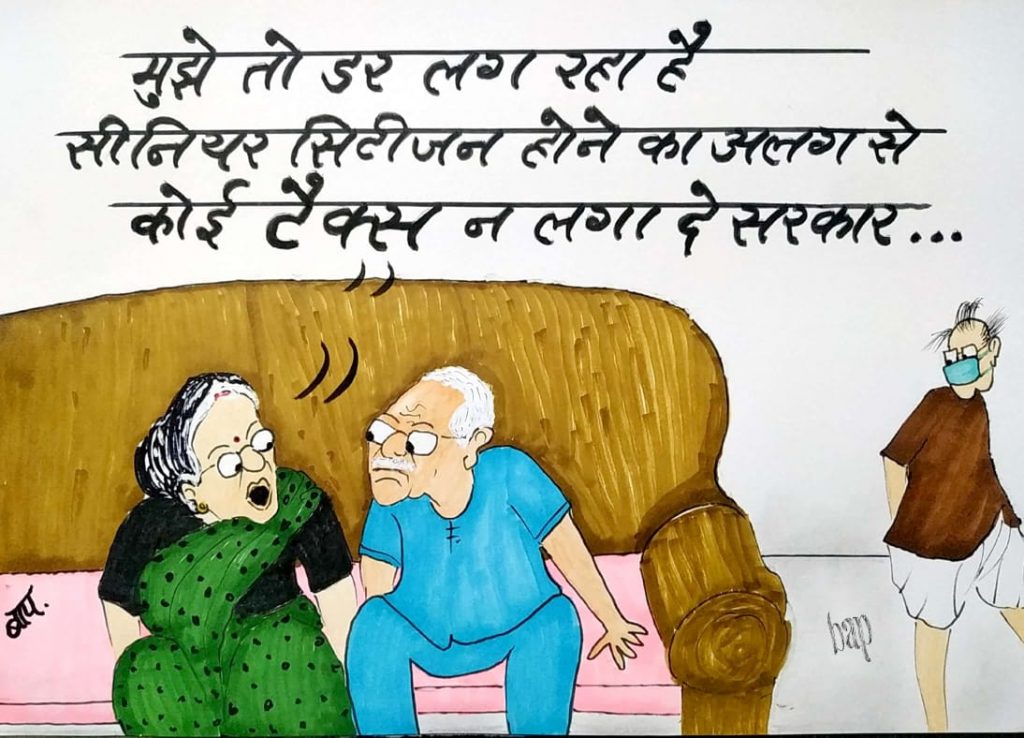 मुझे तो डर लग रहा है
सीनियर सिटीजन होने का अलग से
कोई टैक्स न लगा दे सरकार...
बाप.
bap